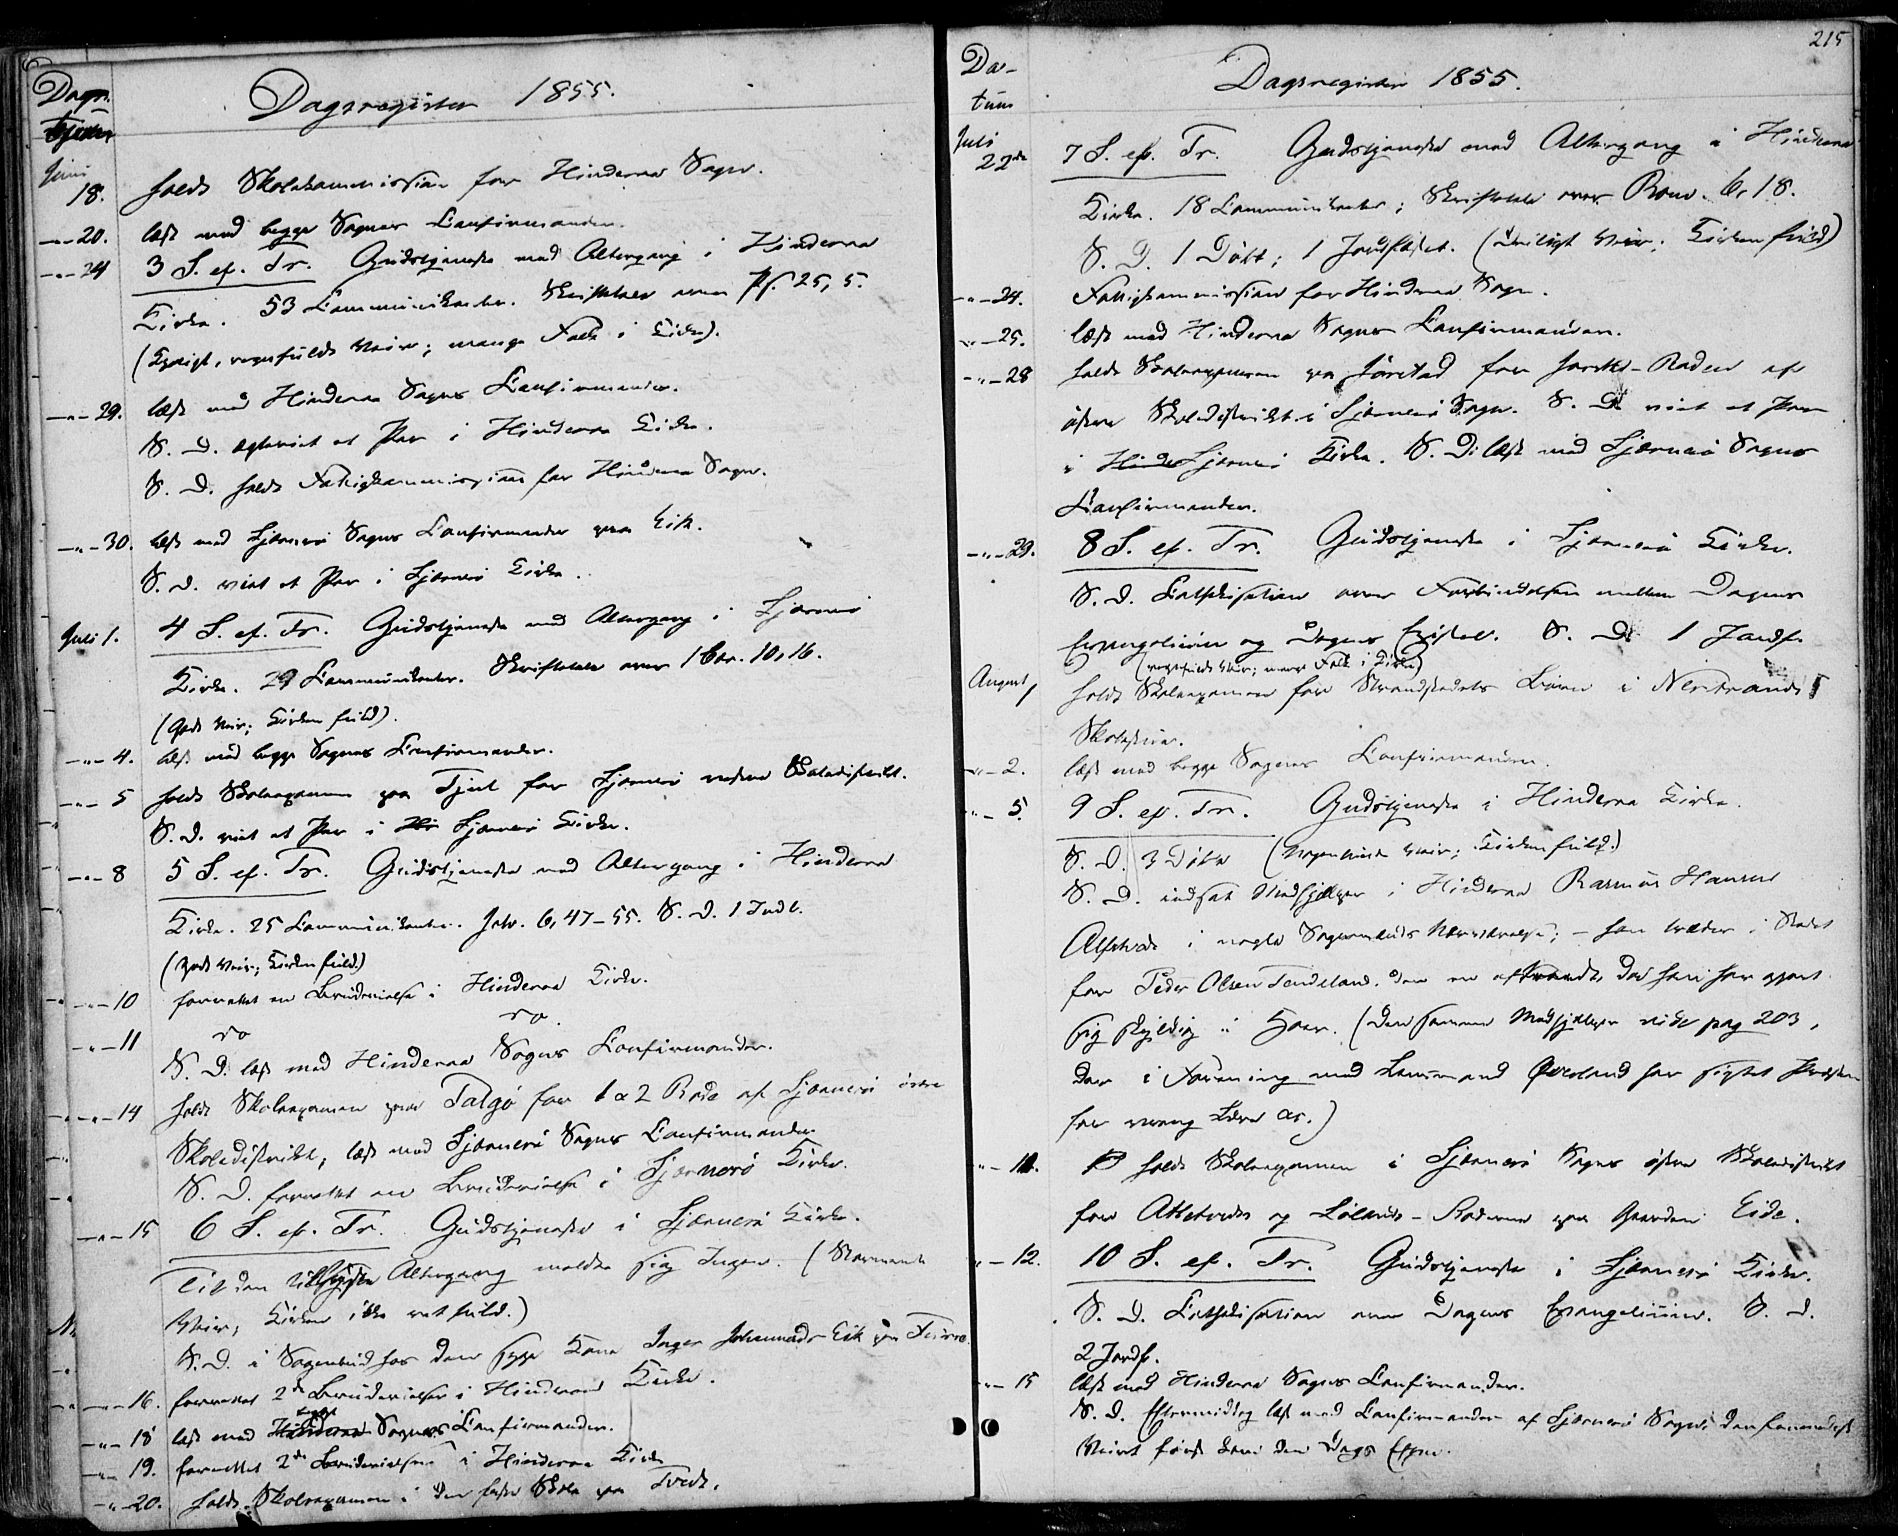 Dagsregister 1855.
Juni
18. holdt Skolekommission for Hinderaa Sogn.
-"- 20. læst med begge Sognes Confirmander.
-"- 24 3 S. ef. Tr. Gudstjeneste med Altergang i Hinderaa
Kirke. 53 Communikanter. Skriftetale over Ps. 25, 5.
regnfuldt Veir; mange Folk i Kirke).
-"- 29. læst med Hinderaa Sogns Confirmander.
S. D. egteviet et Par i Hinderaa Kirke.
S. D. holdt Fattigkommission for Hinderaa Sogn.
-"- 30. læst med Sjærnerø Sogns Confirmander paa Eik.
S. D. viet et Par i Sjærnerø Kirke.
Juli 1. 4 S. ef. Tr. Gudstjeneste med Altergang i Sjærnerø
Kirke. 29 Communikanter. Skriftetale over 1 Cor. 10, 16.
(Godt Veir; Kirken fuld).
-"- 4. læst med begge Sognes Confirmander.
-"- 5 holdt Skoleexamen paa Tjul for Sjærnerø vestre Skoledistrikt.
S. D. viet et Par i Sjærnerø Kirke.
-"- 8 5 S. ef. Tr. Gudstjeneste med Altergang i Hinderaa
Kirke. 25 Communikanter. Joh. 6, 47-55. S. D. 1 Indl.
(godt Veir; Kirken fuld.)
-"- 10 forrettet en Brudevielse i Hinderaa Kirke.
-"- 11 do do.
S. D. læst med Hinderaa Sogns Confirmander.
-"- 14 holdt Skoleexamen paa Talgø for 1 & 2 Rode af Sjærnerø østre
Skoledistrikt; læst med Sjærnerø Sogns Confirmander.
S. D. forrettet en Brudevielse i Sjærnerø Kirke.
-"- 15 6 S. ef. Tr. Gudstjeneste i Sjærnerø Kirke.
Til den tillyste Altergang meldte sig Ingen. (Stormende
Veir, Kirken ikke ret fuld.)
S. D. i Sognebud hos den syge Kone Inger Johannesdr Eik paa
-"- 16. forrettet 2de Brudevielser i Hinderaa Kirke.
-"- 18 læst med begge Sognes Confirmander.
-"- 19. forrettet 2de Brudevielser i Hinderaa Kirke
-"- 20. holdt Skoleexamen i den faste Skole paa Tvedt.
215
Da-
tum
Dagsregister 1855.
Juli
22de 7 S. ef. Tr. Gudstjeneste med Altergang i Hinderaa
Kirke. 18 Communikanter; Skriftetale over Rom. 6, 18.
S. D. 1 Døbt; 1 Jordfæstet. (Veir; Kirken fuld)
-"- 24. Fattigkommission for Hinderaa Sogn.
-"- 25. læst med Hinderaa Sogns Confirmander.
-"- 28 holdt Skoleexamen paa for Roden af
østre Skoledistrikt i Sjærnerø Sogn. S. D. viet et Par
i Sjærnerø Kirke. S. D. læst med Sjærnerø Sogns
Confirmander.
-"- 29. 8 S. ef. Tr. Gudstjeneste i Sjærnerø Kirke.
S. D. Cathekisation over Forbindelsen mellem Dagens
Evangelium og Dagens Epistel. S. D. 1 Jordf.
(regnfuldt Veir; mange Folk i Kirke)
August 1 holdt Skoleexamen for Strandstedets Børn i Nerstrands
Skolestue.
-"- 2. læst med begge Sognes Confirmander.
-"- 5. 9 S. ef. Tr. Gudstjeneste i Hinderaa Kirke.
S. D. 3 Døbte (Veir; Kirken fuld.)
S. D. indsat Medhjelper i Hinderaa Rasmus Hansen
i nogle Sognemænds Nærværelse; - han træder i Stedet
for Peder Olsen Tendeland, som er afskediget, da han har gjort
sig skyldig i Hoer. (den samme Medhjelper vide pag 203,
der i Forening med Lensmand Øverland har sigtet Præsten
for vrang Lære &c.)
-"- 11. holdt Skoleexamen i Sjærnerø Sogns østre Skoledistrikt
for og Roderne paa Gaarden Eide.
-"- 12. 10 S. ef. Tr. Gudstjeneste i Sjærnerø Kirke.
S. D. Cathekisation over Dagens Evangelium. S. D.
2 Jordf.
-"- 15 læst med Hinderaa Sogns Confirmander.
S. D. Eftermiddag læst med Confirmander af Sjærnerø Sogn,
først den Dags Efterm.